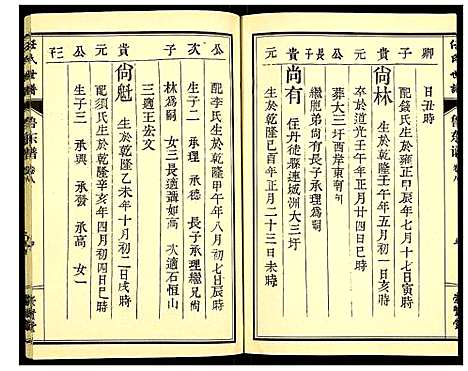 任氏世譜
卿
日丑時
貴 尙林 生於乾隆壬午年五月初一日亥時
元 配錢氏生於雍正庚申七月十七日寅時
卒於道光壬午年正月廿四日巳時
公 葬大三圩西岸東向
長子 繼胞弟尚有長子承理爲嗣
尙有 住丹徒縣連城洲大三圩
生於乾隆己酉年正月二十三日未時
任氏世譜
公 配李氏生於乾隆甲午年八月初七日辰時
次 生子二 承理 承德 長子承理繼兄尚
子 林爲嗣 女三長適蕭如高 次適石恒山
三適王宏文
貴 尙魁 生於乾隆乙未年十月初二日戌時
元 配須氏生於辛亥年四月初四日巳時
公 生子三 承興 承發 承高 女一
三